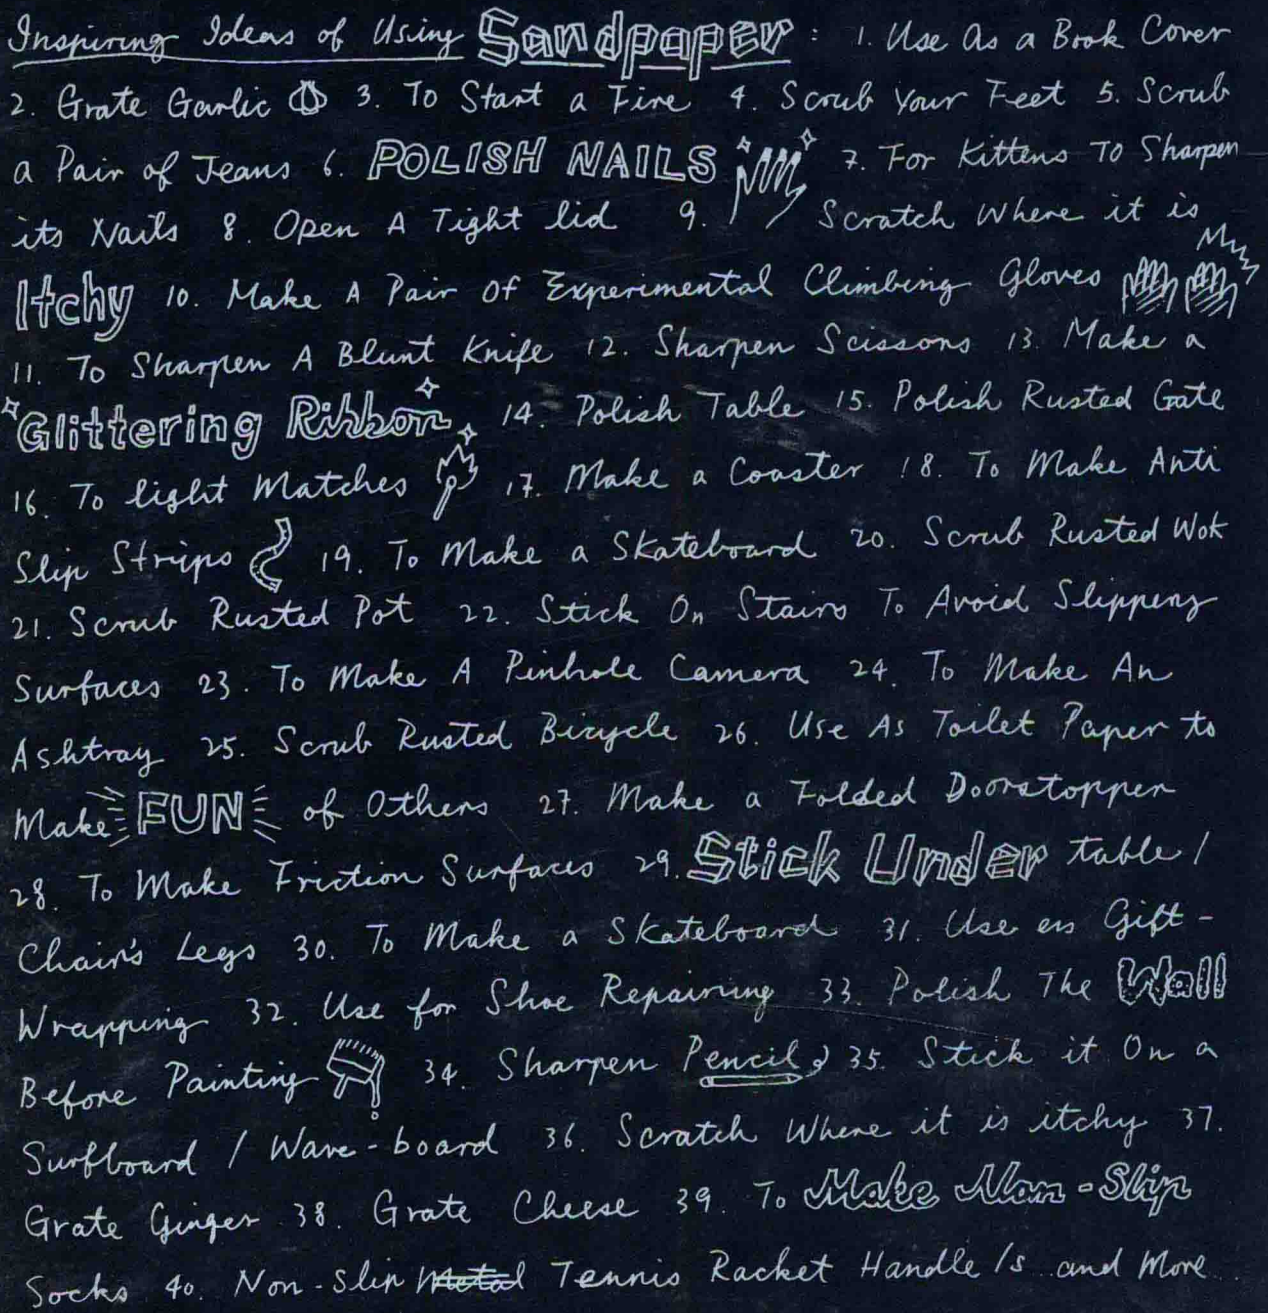 Inspiring Ideas of Using Sandpaper : 1. Use As a Book Cover
2. Grate Garlic 3. To Start a Fire 4. Scrub Your Feet 5. Scrub
a Pair of Jeans 6. POLISH NAILS 7. For Kittens To Sharpen
its Nails 8. Open A Tight lid 9. Scratch Where it is
Itchy 10. Make A Pair Of Experimental Climbing Gloves
11. To Sharpen A Blunt Knife 12. Sharpen Scissors 13. Make a
Glittering Ribbon 14. Polish Table 15. Polish Rusted Gate
16. To light Matches 17. Make a Coaster 18. To Make Anti
Slip Strips 19. To Make a Skateboard 20. Scrub Rusted Wok
21. Scrub Rusted Pot 22. Stick On Stairs To Avoid Slippery
Surfaces 23. To Make A Pinhole Camera 24. To Make An
Ashtray 25. Scrub Rusted Bicycle 26. Use As Toilet Paper to
Make FUN of Others 27. Make a Folded Doorstopper
28. To Make Friction Surfaces 29. Stick Under table /
Chair's Legs 30. To Make a Skateboard 31. Use as Gift-
Wrapping 32. Use for Shoe Repairing 33. Polish The Wall
Before Painting 34. Sharpen Pencil 35. Stick it On a
Surfboard / Wave-board 36. Scratch Where it is itchy 37.
Grate Ginger 38. Grate Cheese 39. To Make Non-Slip
Socks 40. Non-Slip Metal Tennis Racket Handle/s and More